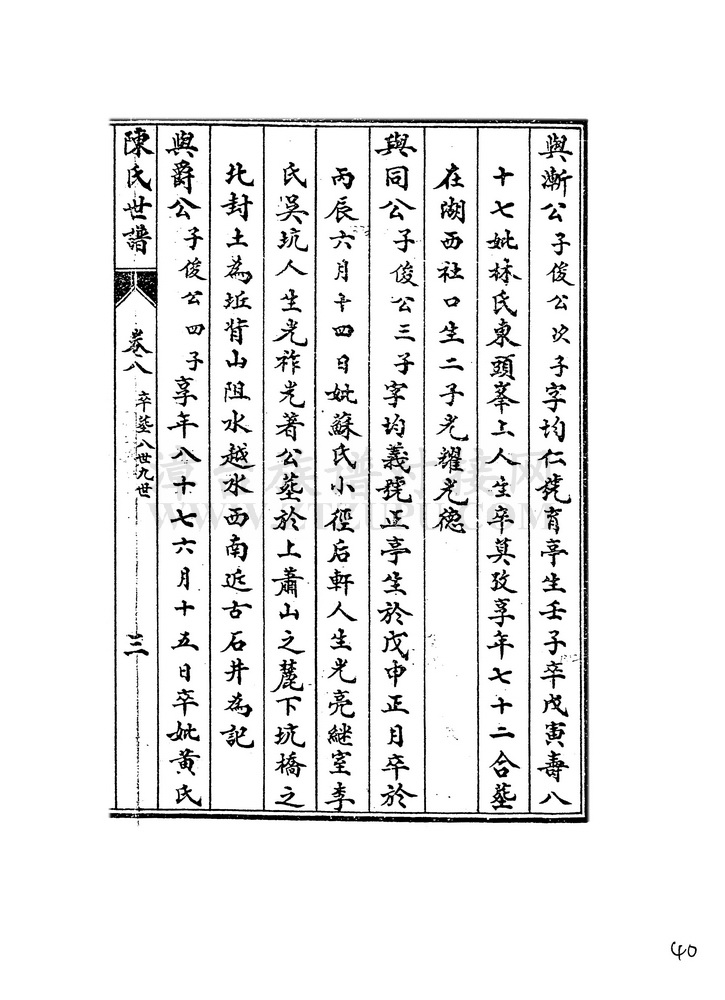 與漸公子俊公次子字均仁號育亭生壬子卒戊寅壽八
十七妣林氏東頭峯上人生卒莫攷享年七十二合塟
在湖西社口生二子光耀光德
與同公子俊公三子字均義號正亭生於戊申正月卒於
丙辰六月十四日妣蘇氏小徑后軒人生光亮継室李
氏吴坑人生光祚光著公塟於上蕭山之麓下坑橋之
北封土為坵背山阻水越水西南近古石井為記
與爵公子俊公四子享年八十七六月十五日卒妣黃氏
陳氏世譜 卷八 卒塟八世九世 三
WWW.YTZUPU.COM
40